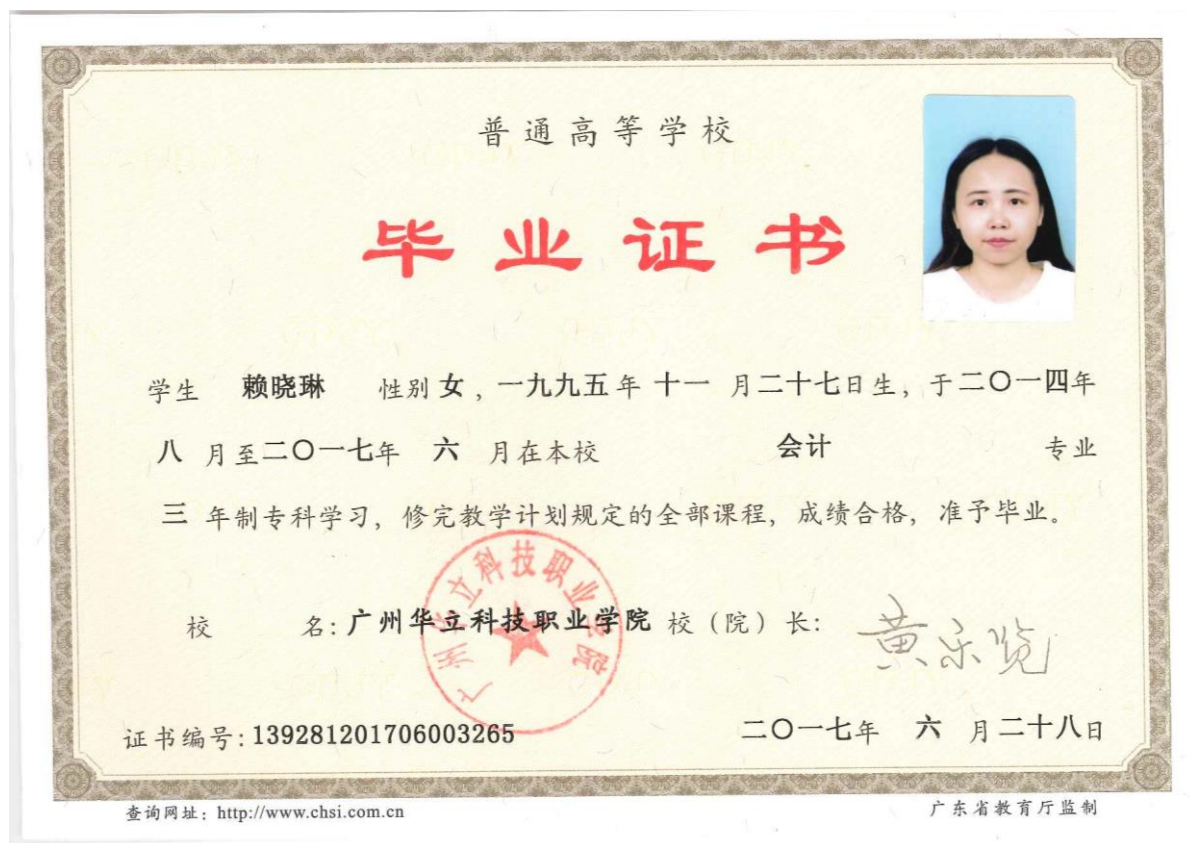 普通高等学校
毕业证书
学生 赖晓琳 性别 女，一九九五年 十一 月二十七日生，于二〇一四年
八 月至二〇一七年 六 月在本校 会计 专业
三 年制专科学习，修完教学计划规定的全部课程，成绩合格，准予毕业。
校 名：广州华立科技职业学院 校（院）长：
黄乐览
广州华立科技职业学院
证书编号：139281201706003265 二〇一七年 六 月二十八日
查询网址：http://www.chsi.com.cn 广东省教育厅监制